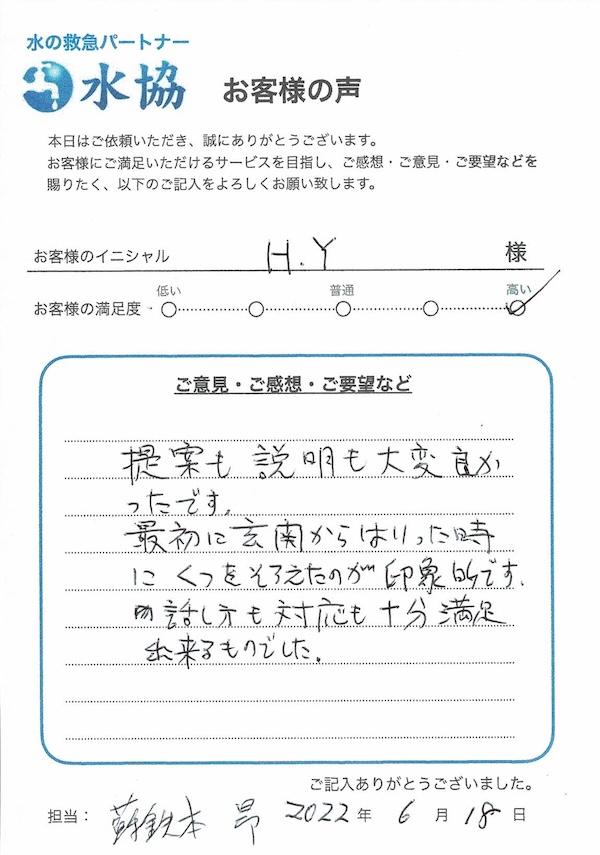 水の救急パートナー
水協 お客様の声
本日はご依頼いただき、誠にありがとうございます。
お客様にご満足いただけるサービスを目指し、ご感想・ご意見・ご要望などを
賜りたく、以下のご記入をよろしくお願い致します。
お客様のイニシャル H.Y 様
低い 普通 高い
お客様の満足度
ご意見・ご感想・ご要望など
提案も説明も大変良か
ったです。
最初に玄関からはいった時
に くつをそろえたのが印象的です。
話し方も対応も十分満足
出来るものでした。
ご記入ありがとうございました。
担当: 本 昂 2022年 6月 18日